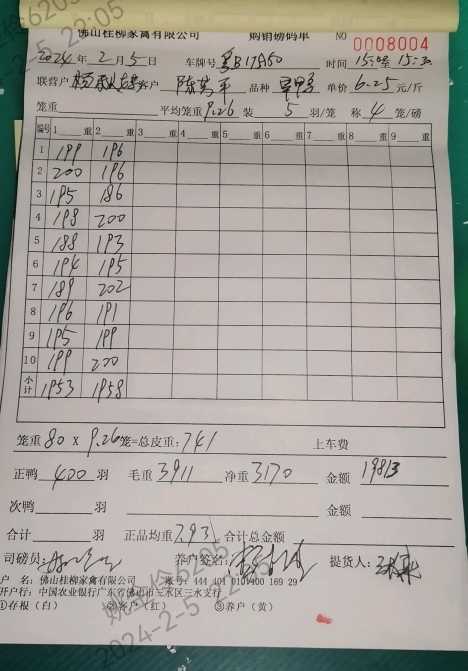 佛山桂柳家禽有限公司 购销磅码单 NO 0008004
2024年2月5日 车牌号 粤B17A50 时间 15:30
联营户 客户 品种 单价 6.25 元/斤
笼重 平均笼重 9.26 装 5 羽/笼 称 4 笼/磅
编号 1 重 2 重 3 重 4 重 5 重 6 重 7 重 8 重 9 重
1 199 196
2 200 196
3 195 186
4 198 200
5 188 193
6 194 195
7 189 202
8 196 191
9 195 199
10 199 200
小计 1953 1958
笼重 80 X 9.26 笼=总皮重: 741 上车费
正鸭 400 羽 毛重 3911 净重 3170 金额 19813
次鸭 羽 金额
合计 羽 正品均重 7.93 合计总金额
司磅员: 养户签名: 提货人:
户 名: 佛山桂柳家禽有限公司 账号: 444 401 0101400 169 29
开户行: 中国农业银行广东省佛山市三水区三水支行
①存根(白) ②客户(红) ③养户(黄)
2024-2-5 22:05